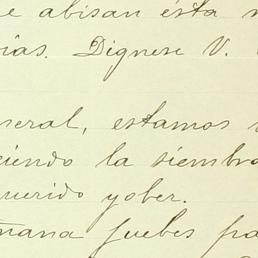 e abisan ésta
ías. Dignese V.
neral, estamos
iendo la siembra
querido yober.
ñana juebes pa